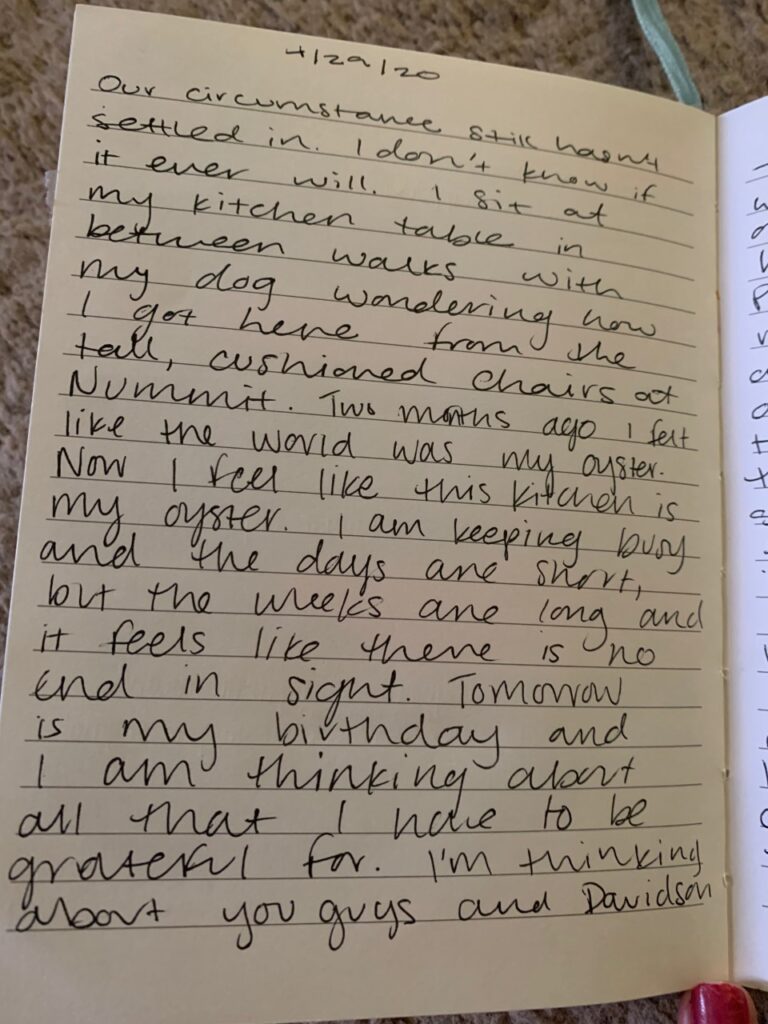 4/29/20
Our circumstance still hasn't
settled in. I don't know if
it ever will. I sit at
my kitchen table in
between walks with
my dog wondering how
I got here from the
tall, cushioned chairs at
Nummit. Two months ago I felt
like the world was my oyster.
Now I feel like this kitchen is
my oyster. I am keeping busy
and the days are short,
but the weeks are long and
it feels like there is no
end in sight. Tomorrow
is my birthday and
I am thinking about
all that I have to be
grateful for. I'm thinking
about you guys and Davidson